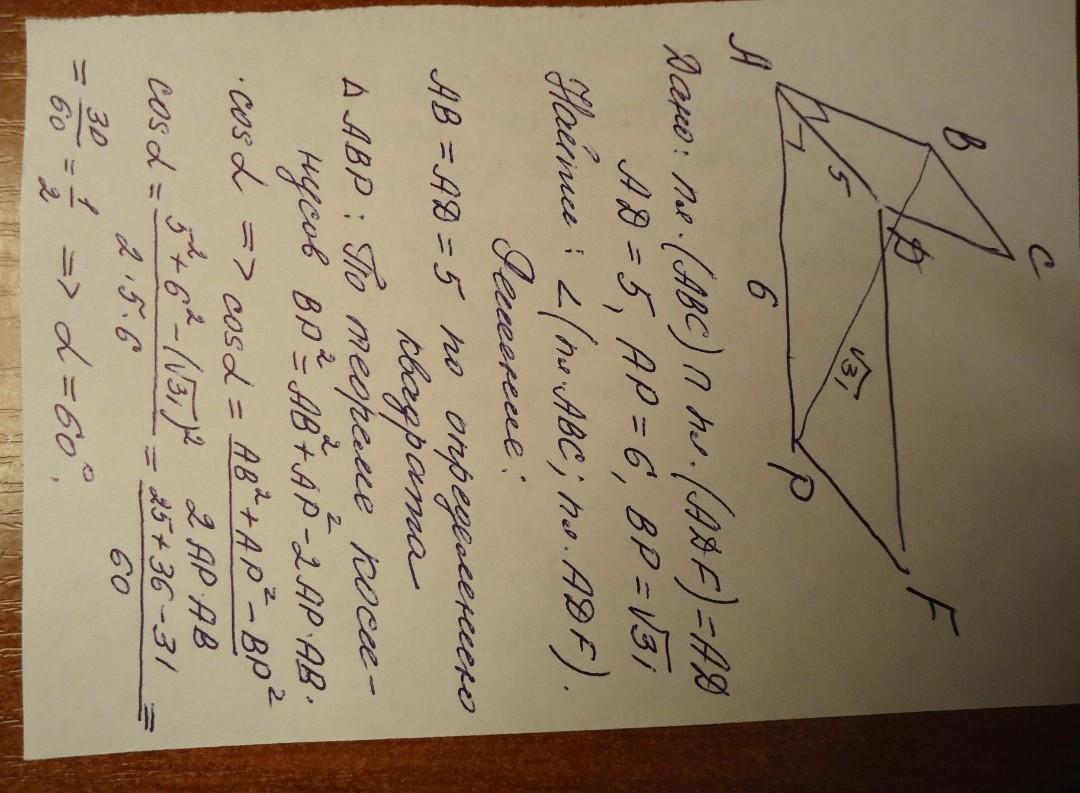 A
B
C
D
5
6
√31
P
F
Дано: пл.(ABC) ∩ пл.(ADF)=AD
AD=5, AP=6, BP=√31
Найти: ∠(пл.ABC; пл.ADF).
Решение:
AB=AD=5 по определению
квадрата
Δ ABP: По теореме коси-
нусов BP²=AB²+AP²-2AP·AB·
·cosα => cosα = (AB²+AP²-BP²)/(2AP·AB)
cosα = (5²+6²-(√31)²)/(2·5·6) = (25+36-31)/60 =
= 30/60 = 1/2 => α=60°.